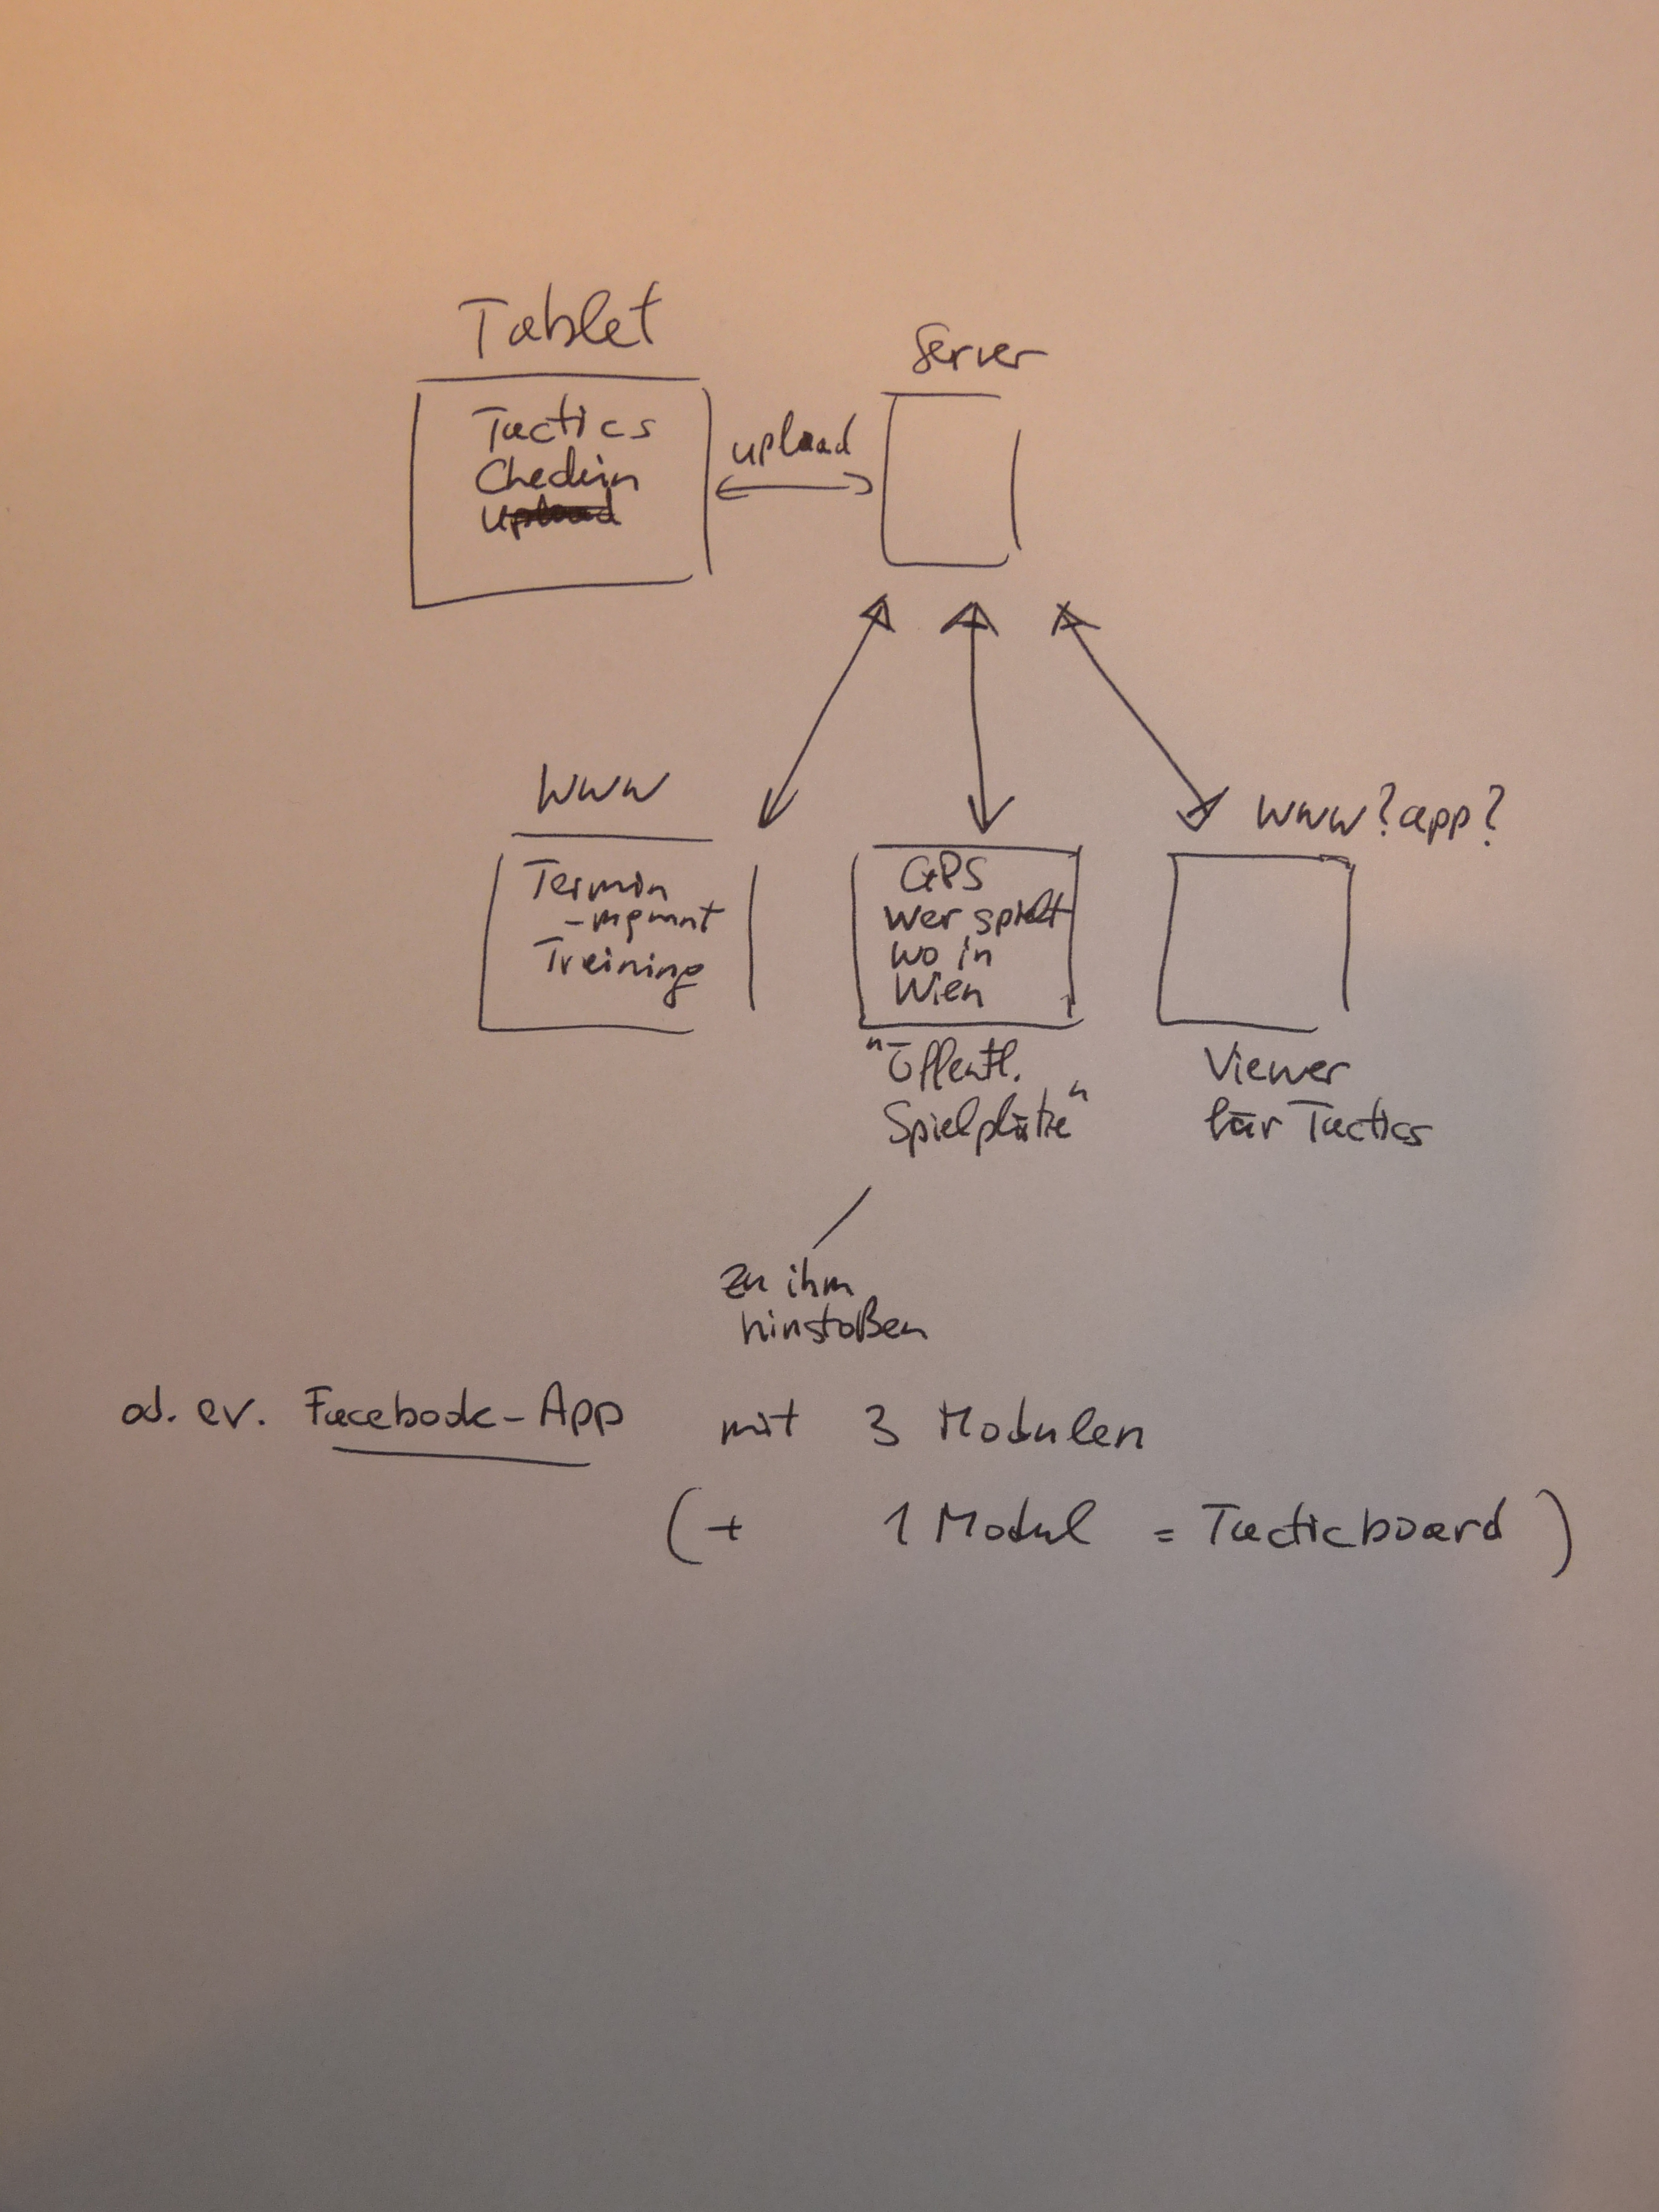 Tablet
Server
Tactics
Checkin
upload
upload
www
Termin
-mgmnt
Training
GPS
wer spielt
wo in
Wien
www? app?
"Öffentl.
Spielplätze"
Viewer
für Tactics
zu ihm
hinstoßen
od. ev. Facebook-App mit 3 Modulen
(+ 1 Modul = Tacticboard)